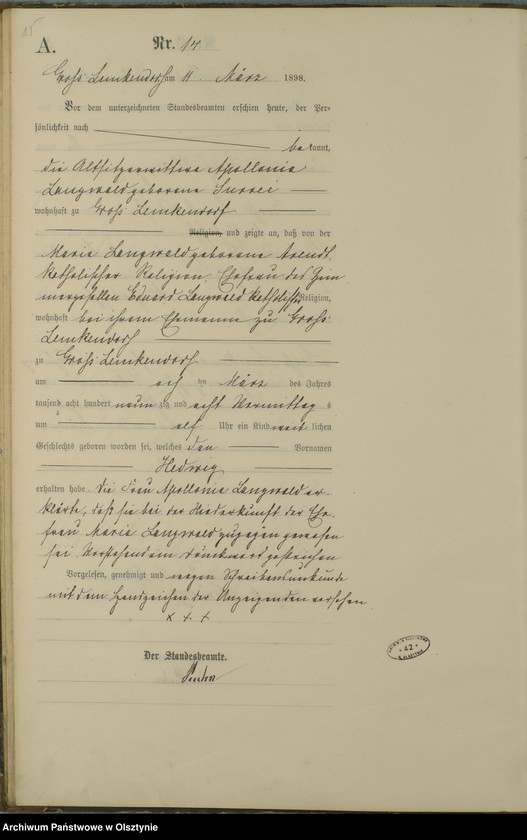 A.
Nr. 14
Groß Lemkendorf am 11. März 1898.
Vor dem unterzeichneten Standesbeamten erschien heute, der Per=
sönlichkeit nach
be kannt,
die Altsitzerwittwe Apollonia
Langwald geborene
wohnhaft zu Groß Lemkendorf
Religion, und zeigte an, daß von der
Marie Langwald geborene Arendt,
katholischer Religion, Ehefrau des Zim
mergesellen Eduard Langwald katholischer Religion,
wohnhaft bei ihrem Ehemanne zu Groß
Lemkendorf
zu Groß Lemkendorf
am ten März des Jahres
tausend acht hundert neun zig und acht Vormittag s
um elf Uhr ein Kind weib lichen
Geschlechts geboren worden sei, welches den Vornamen
Hedwig
erhalten habe. Die Frau Apollonia Langwald er-
klärte, daß sie bei der Niederkunft der Ehe-
frau Marie Langwald zugegen gewesen
sei. Vorstehend ein Druckword gestrichen
Vorgelesen, genehmigt und wegen Schreibensunkunde
mit dem Handzeichen der Anzeigenden versehen
x + +
Der Standesbeamte.
42
Archiwum Państwowe w Olsztynie